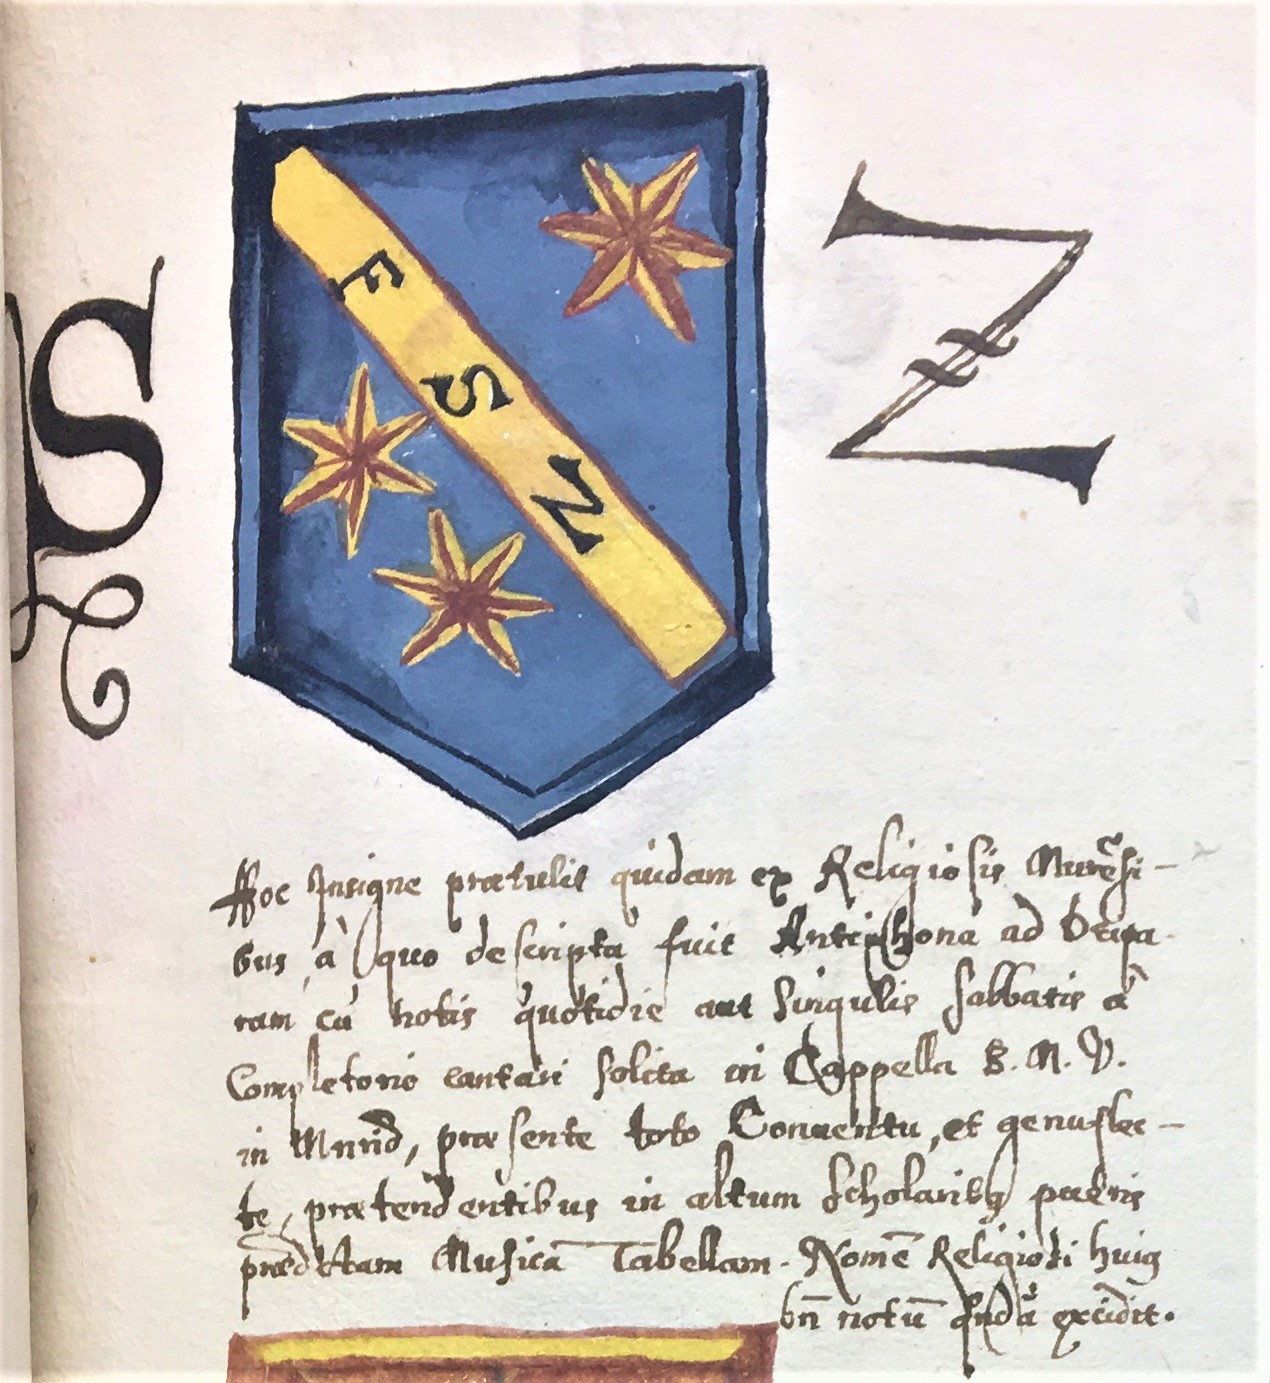 S
Z
F S Z
Hoc Insigne prætulit quidam ex Religiosis Murēsi-
bus, à quo descripta fuit Antiphona ad Deipa-
ram cū notis quotidie aut singulis sabbatis à
Completorio cantari solita in Cappella B. M. V.
in, præsente toto Conventu, et genuflec-
te, prætendentibus in altum scholaribꝫ pueris
prædictam Musicā Tabellam. Nomē Religiosi huiꝯ
bn̄ notū excidit.